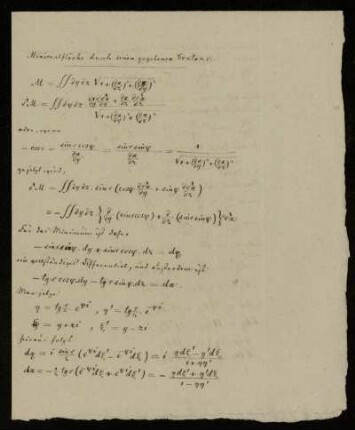 Minimalfläche durch einen gegebenen Contour.
M = ∬ dy dz √1+(∂x/∂y)²+(∂x/∂z)²
δM = ∬ dy dz (∂x/∂y ∂δx/∂y + ∂x/∂z ∂δx/∂z) / √1+(∂x/∂y)²+(∂x/∂z)²
oder, wenn
− cos r = sin r cos φ / (∂x/∂y) = sin r sin φ / (∂x/∂z) = 1 / √1+(∂x/∂y)²+(∂x/∂z)²
gesetzt wird,
δM = ∬ dy dz sin r (cos φ ∂δx/∂y + sin φ ∂δx/∂z)
= − ∬ dy dz {∂/∂y (sin r cos φ) + ∂/∂z (sin r sin φ)} δx
Für das Minimum ist daher
− sin r sin φ dy + sin r cos φ dz = dq
ein vollständiges Differential, und außerdem ist
− tg r cos φ dy − tg r sin φ dz = dx.
Man setze
η = tg r/2 e^φi , η' = tg r/2 e^−φi
ξ = y+zi , ξ' = y−zi
hieraus folgt
dq = i sin r/2 (e^φi dξ' − e^−φi dξ) = i (η dξ' − η' dξ)/(1+ηη')
dx = −½ tg r (e^φi dξ' + e^−φi dξ) = − (η dξ' + η' dξ)/(1−ηη')